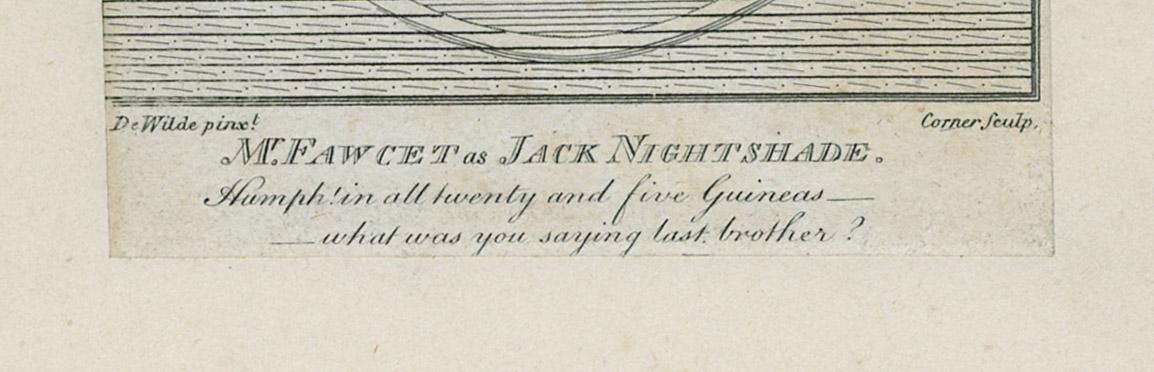 De Wilde pinxt.
Corner Sculp.
Mr. FAWCET as JACK NIGHTSHADE.
Humph! in all twenty and five Guineas—
—what was you saying last brother?